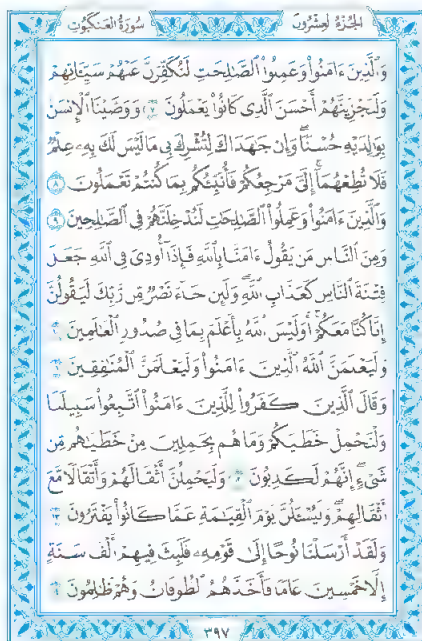 الجزء العشرون سورة العنكبوت
وَٱلَّذِينَ ءَامَنُوا۟ وَعَمِلُوا۟ ٱلصَّٰلِحَٰتِ لَنُكَفِّرَنَّ عَنْهُمْ سَيِّـَٔاتِهِمْ
وَلَنَجْزِيَنَّهُمْ أَحْسَنَ ٱلَّذِى كَانُوا۟ يَعْمَلُونَ ٧ وَوَصَّيْنَا ٱلْإِنسَٰنَ
بِوَٰلِدَيْهِ حُسْنًا وَإِن جَٰهَدَاكَ لِتُشْرِكَ بِى مَا لَيْسَ لَكَ بِهِۦ عِلْمٌ
فَلَا تُطِعْهُمَآ إِلَىَّ مَرْجِعُكُمْ فَأُنَبِّئُكُم بِمَا كُنتُمْ تَعْمَلُونَ ٨
وَٱلَّذِينَ ءَامَنُوا۟ وَعَمِلُوا۟ ٱلصَّٰلِحَٰتِ لَنُدْخِلَنَّهُمْ فِى ٱلصَّٰلِحِينَ ٩
وَمِنَ ٱلنَّاسِ مَن يَقُولُ ءَامَنَّا بِٱللَّهِ فَإِذَآ أُوذِىَ فِى ٱللَّهِ جَعَلَ
فِتْنَةَ ٱلنَّاسِ كَعَذَابِ ٱللَّهِ وَلَئِن جَآءَ نَصْرٌ مِّن رَّبِّكَ لَيَقُولُنَّ
إِنَّا كُنَّا مَعَكُمْ أَوَلَيْسَ ٱللَّهُ بِأَعْلَمَ بِمَا فِى صُدُورِ ٱلْعَٰلَمِينَ
وَلَيَعْلَمَنَّ ٱللَّهُ ٱلَّذِينَ ءَامَنُوا۟ وَلَيَعْلَمَنَّ ٱلْمُنَٰفِقِينَ
وَقَالَ ٱلَّذِينَ كَفَرُوا۟ لِلَّذِينَ ءَامَنُوا۟ ٱتَّبِعُوا۟ سَبِيلَنَا
وَلْنَحْمِلْ خَطَٰيَٰكُمْ وَمَا هُم بِحَٰمِلِينَ مِنْ خَطَٰيَٰهُم مِّن
شَىْءٍ إِنَّهُمْ لَكَٰذِبُونَ وَلَيَحْمِلُنَّ أَثْقَالَهُمْ وَأَثْقَالًا مَّعَ
أَثْقَالِهِمْ وَلَيُسْـَٔلُنَّ يَوْمَ ٱلْقِيَٰمَةِ عَمَّا كَانُوا۟ يَفْتَرُونَ
وَلَقَدْ أَرْسَلْنَا نُوحًا إِلَىٰ قَوْمِهِۦ فَلَبِثَ فِيهِمْ أَلْفَ سَنَةٍ
إِلَّا خَمْسِينَ عَامًا فَأَخَذَهُمُ ٱلطُّوفَانُ وَهُمْ ظَٰلِمُونَ
٣٩٧